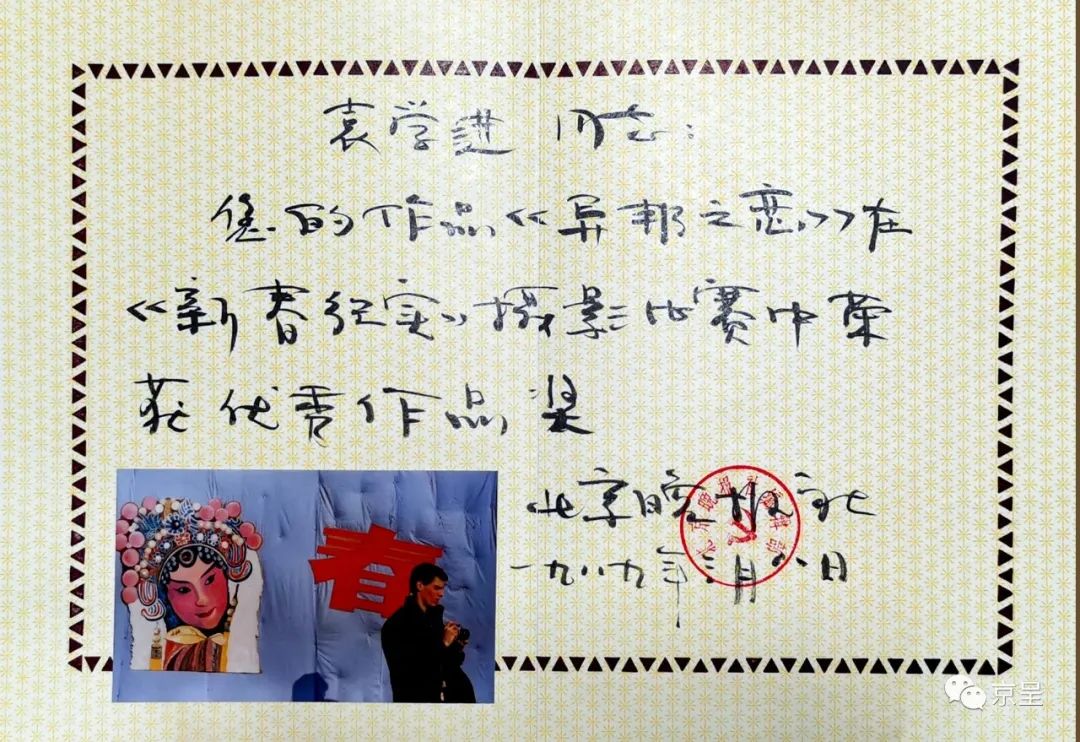 袁学进 同志:
您的作品《异邦之恋》在
《新春纪实》摄影比赛中荣
获优秀作品奖
北京晚报
一九八九年三月 日
春
京呈